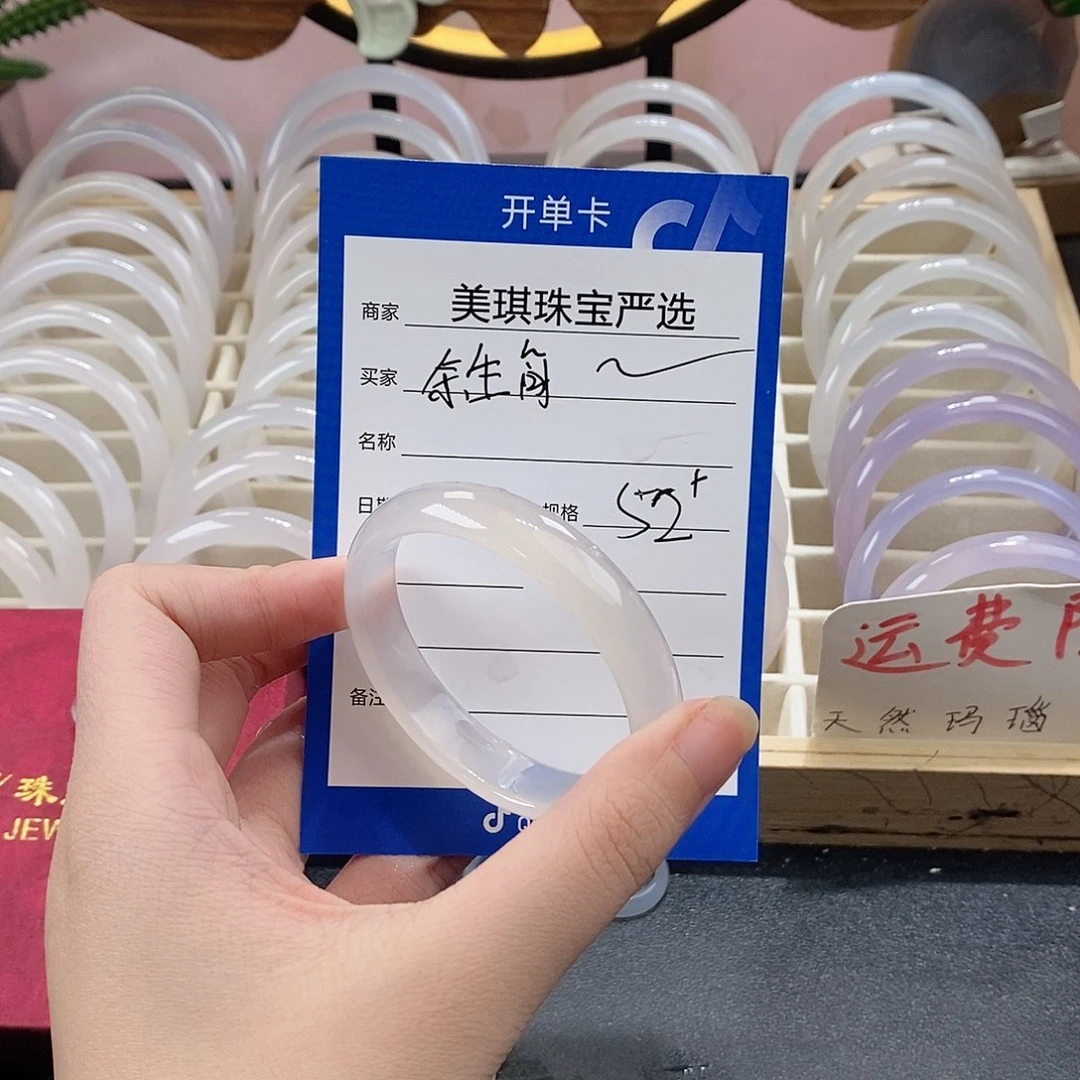 开单卡
商家 美琪珠宝严选
买家 余生
名称
规格 52+
备注
运费
天然玛瑙
珠
JEW